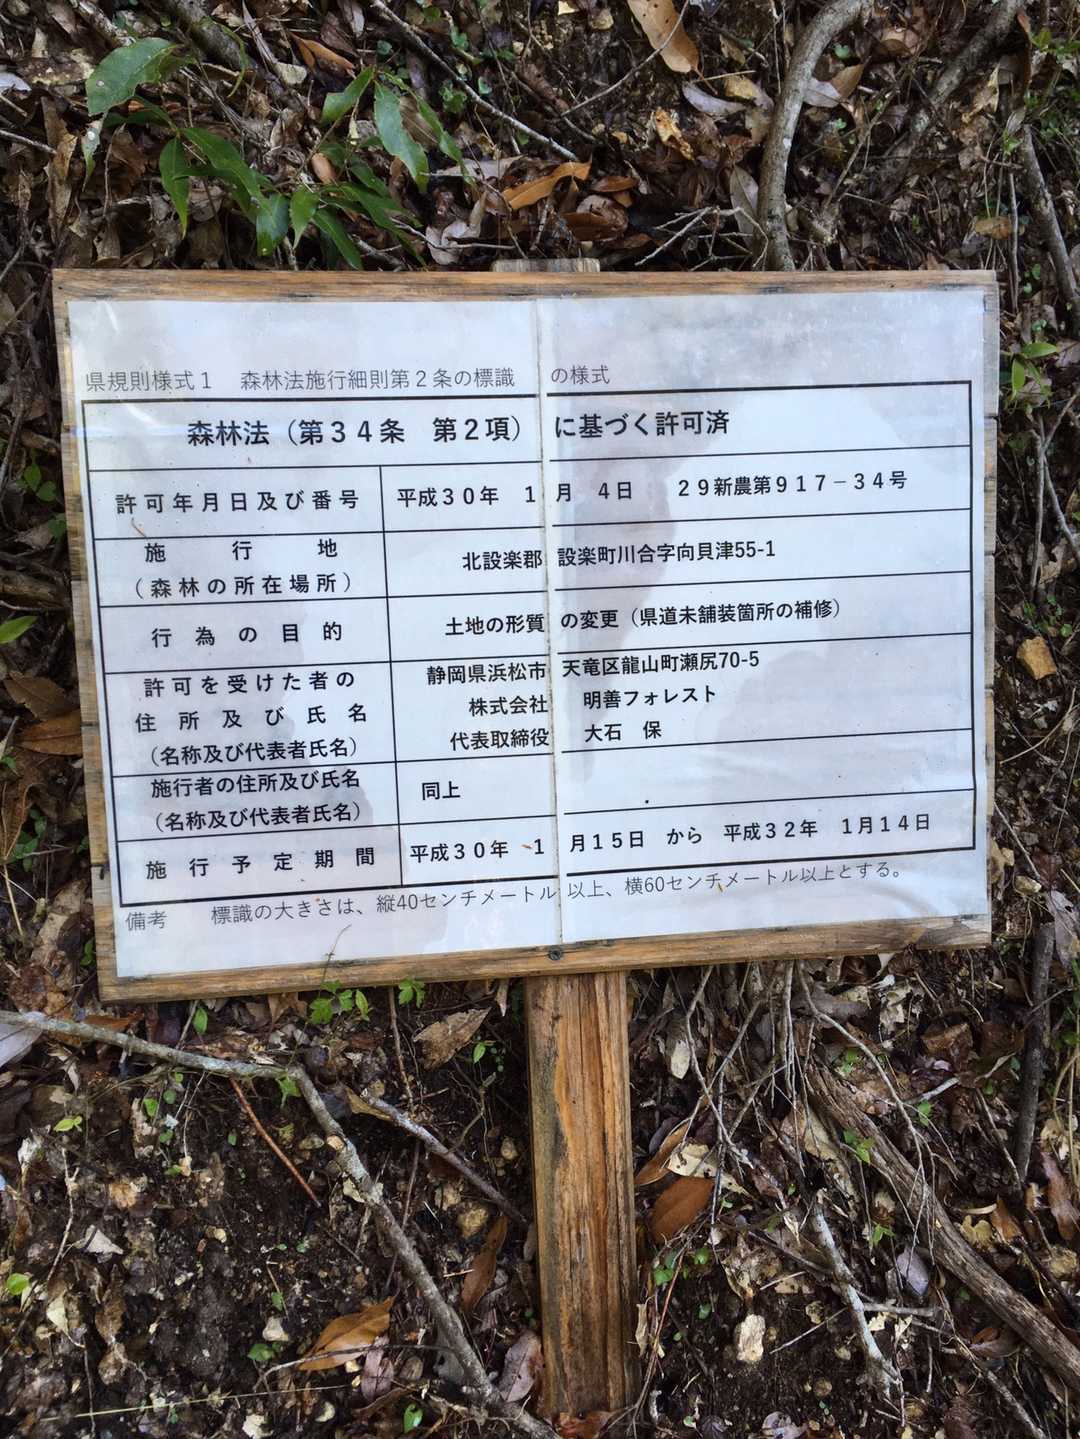 県規則様式1　森林法施行細則第2条の標識の様式
森林法（第34条　第2項）に基づく許可済
許可年月日及び番号　平成30年　1月　4日　29新農第917－34号
施行地
（森林の所在場所）　北設楽郡設楽町川合字向貝津55-1
行為の目的　土地の形質の変更（県道未舗装箇所の補修）
許可を受けた者の
住所及び氏名
（名称及び代表者氏名）
静岡県浜松市天竜区龍山町瀬尻70-5
株式会社　明善フォレスト
代表取締役　大石　保
施行者の住所及び氏名
（名称及び代表者氏名）
同上
施行予定期間　平成30年　1月15日　から　平成32年　1月14日
備考　標識の大きさは、縦40センチメートル以上、横60センチメートル以上とする。